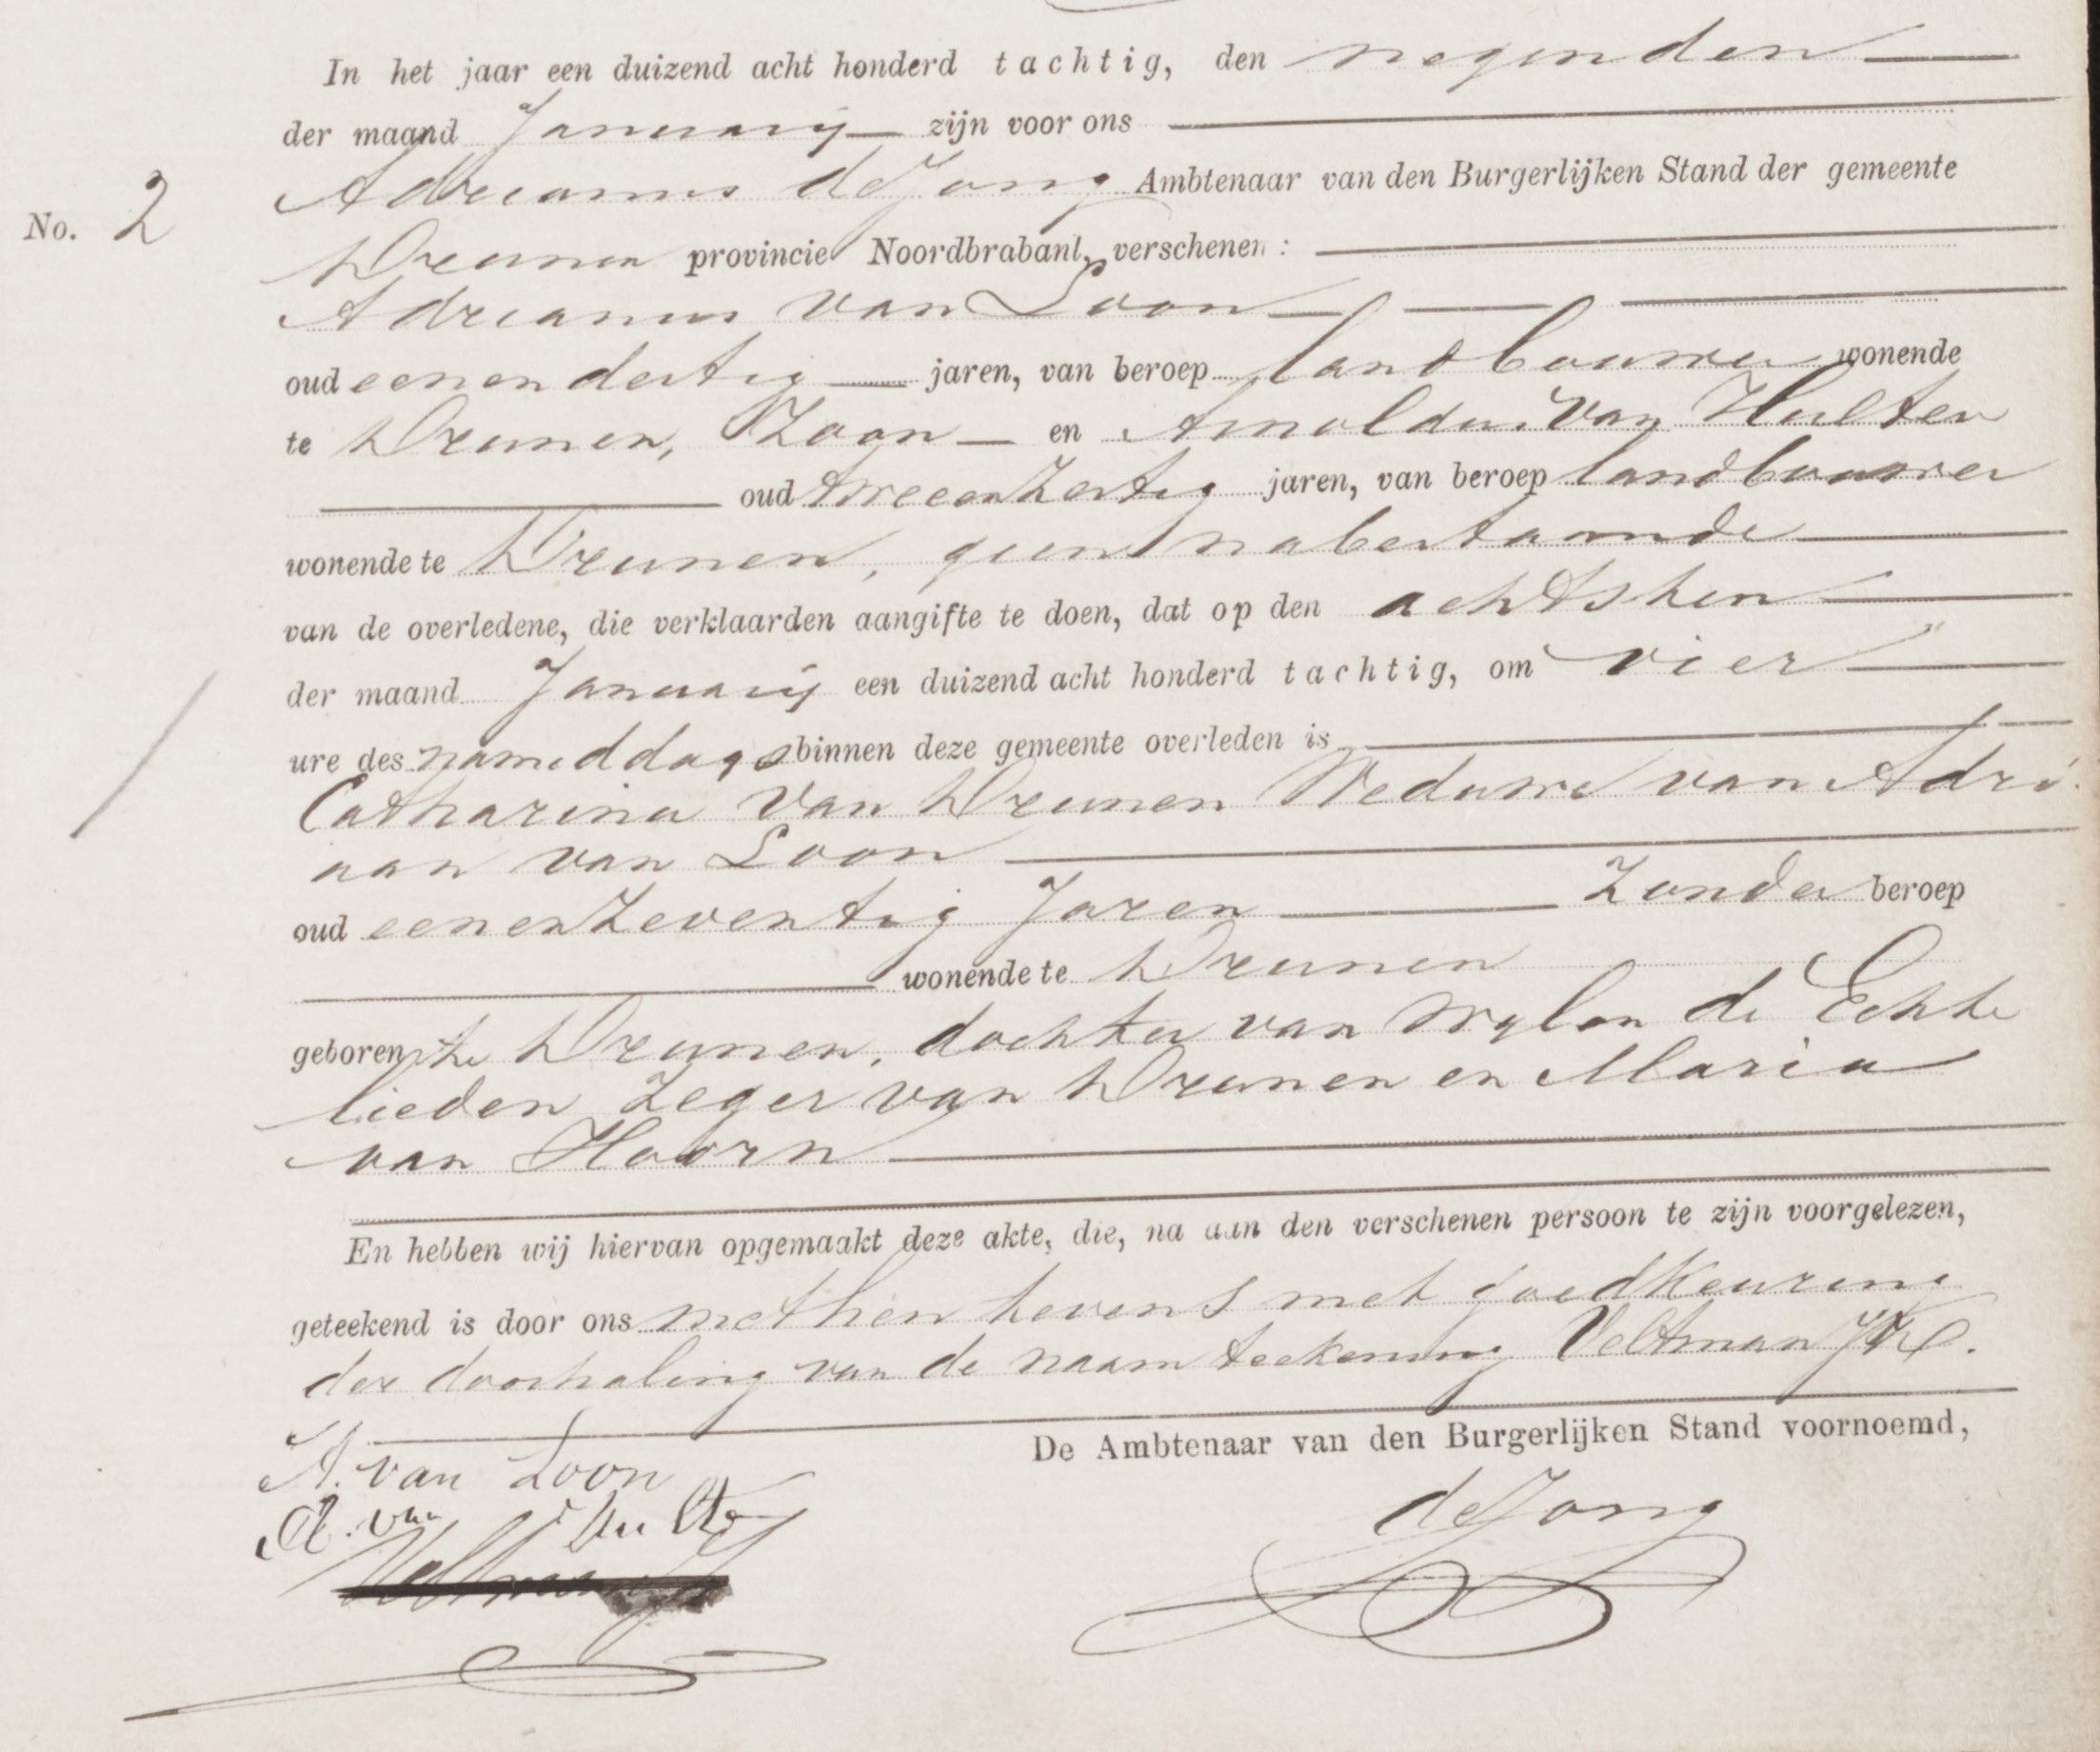 In het jaar een duizend acht honderd tachtig, den negenden
der maand Januarij zijn voor ons
Adrianus de Jong Ambtenaar van den Burgerlijken Stand der gemeente
No. 2
Drunen provincie Noordbrabant, verschenen:
Adrianus van Loon
oud eenendertig jaren, van beroep landbouwer wonende
te Drunen, Zoon en Arnoldus van Hulten
oud tweeenzestig jaren, van beroep landbouwer
wonende te Drunen, geen nabestaande
van de overledene, die verklaarden aangifte te doen, dat op den achtsten
der maand Januarij een duizend acht honderd tachtig, om vier
ure des namiddags binnen deze gemeente overleden is
Catharina van Drunen Weduwe van Adri
aan van Loon
oud eenenzeventig Jaren Zonder beroep
wonende te Drunen
geboren te Drunen, dochter van wylen de Echte
lieden Zeger van Drunen en Maria
van Hoorn
En hebben wij hiervan opgemaakt deze akte, die, na aan den verschenen persoon te zijn voorgelezen,
geteekend is door ons met hen tevens met goedkeuring
der doorhaling van de naamteekening Veltman
De Ambtenaar van den Burgerlijken Stand voornoemd,
A. van Loon
A. van Hulten
de Jong
Veltman